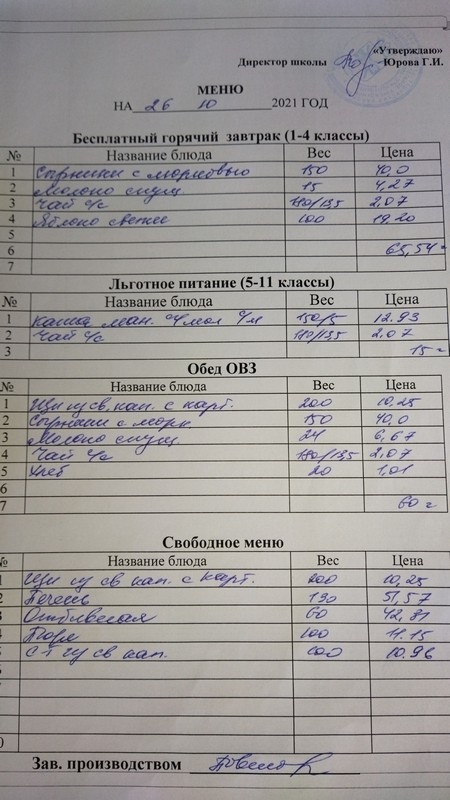 «Утверждаю»
Директор школы Юрова Г.И.
МЕНЮ
НА 26 10 2021 ГОД
Бесплатный горячий завтрак (1-4 классы)
№ Название блюда Вес Цена
1 Сырники с морковью 150 40,0
2 Молоко сгущ. 15 4,27
3 Чай с/с 180/13,5 2,07
4 Яблоко свежее 100 19,20
5
6 65,54
7
Льготное питание (5-11 классы)
№ Название блюда Вес Цена
1 Каша ман. 150/5 12,93
2 Чай с/с 180/13,5 2,07
3 15
Обед ОВЗ
№ Название блюда Вес Цена
1 Щи из св. кап. с карт. 200 10,25
2 Сырники с морк. 150 40,0
3 Молоко сгущ 24 6,67
4 Чай с/с 180/13,5 2,07
5 Хлеб 20 1,01
6
7 60
Свободное меню
№ Название блюда Вес Цена
1 Щи из св кап. с карт. 200 10,25
2 Печень 130 51,57
3 Отбивная 60 42,81
4 Пюре 100 11.15
5 из св кап. 100 10.96
Зав. производством